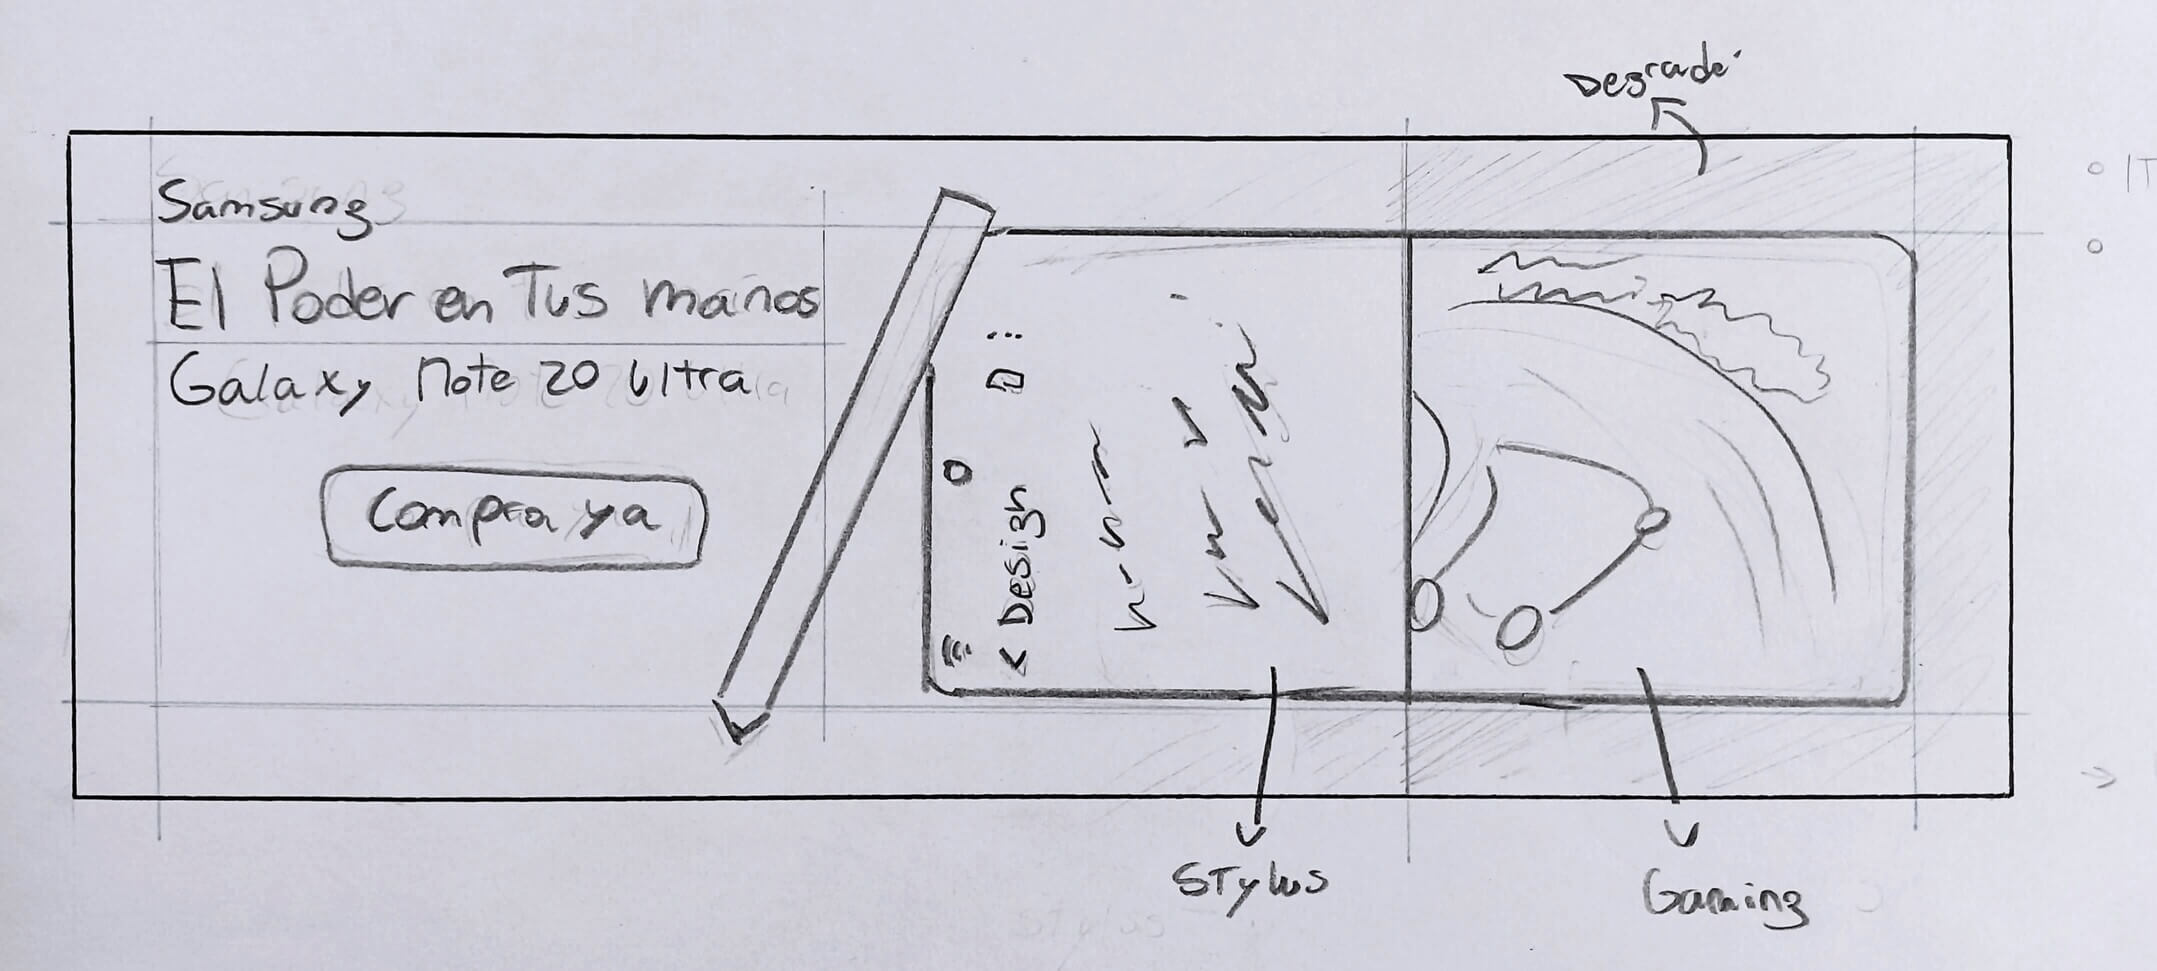 Degradé
Samsung
El Poder en Tus manos
Galaxy Note 20 Ultra
Compra ya
< Design
Stylus
Gaming
IT